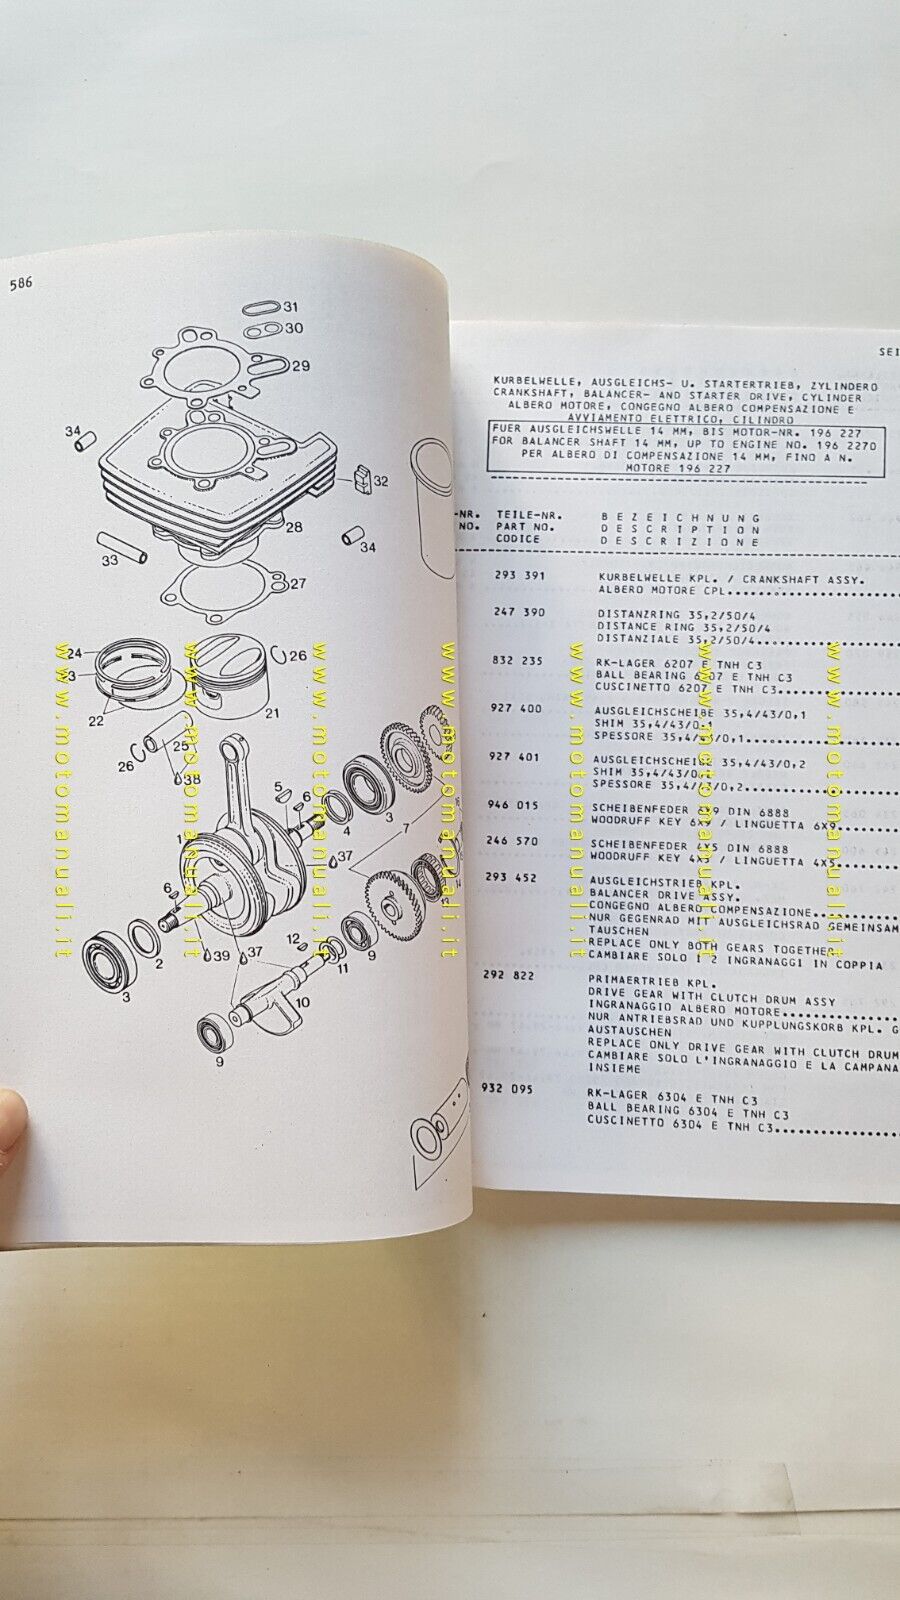 586
31
30
29
34
32
28
34
33
27
24
3
26
22
21
25
26
38
5
6
4
3
7
1
37
6
12
37
39
11
9
2
3
10
9
www.motomanuali.it
www.motomanuali.it
www.motomanuali.it
www.motomanuali.it
www.motomanuali.it
www.motomanuali.it
www.motomanuali.it
SEI
KURBELWELLE, AUSGLEICHS- U. STARTERTRIEB, ZYLINDERO
CRANKSHAFT, BALANCER- AND STARTER DRIVE, CYLINDER
ALBERO MOTORE, CONGEGNO ALBERO COMPENSAZIONE E
AVVIAMENTO ELETTRICO, CILINDRO
FUER AUSGLEICHSWELLE 14 MM, BIS MOTOR-NR. 196 227
FOR BALANCER SHAFT 14 MM, UP TO ENGINE NO. 196 2270
PER ALBERO DI COMPENSAZIONE 14 MM, FINO A N.
MOTORE 196 227
-NR. TEILE-NR. BEZEICHNUNG
NO. PART NO. DESCRIPTION
CODICE DESCRIZIONE
293 391 KURBELWELLE KPL. / CRANKSHAFT ASSY.
ALBERO MOTORE CPL
247 390 DISTANZRING 35,2/50/4
DISTANCE RING 35,2/50/4
DISTANZIALE 35,2/50/4
832 235 RK-LAGER 6207 E TNH C3
BALL BEARING 6207 E TNH C3
CUSCINETTO 6207 E TNH C3
927 400 AUSGLEICHSCHEIBE 35,4/43/0,1
SHIM 35,4/43/0,1
SPESSORE 35,4/43/0,1
927 401 AUSGLEICHSCHEIBE 35,4/43/0,2
SHIM 35,4/43/0,2
SPESSORE 35,4/43/0,2
946 015 SCHEIBENFEDER 6X9 DIN 6888
WOODRUFF KEY 6X9 / LINGUETTA 6X9
246 570 SCHEIBENFEDER 4X5 DIN 6888
WOODRUFF KEY 4X5 / LINGUETTA 4X5
293 452 AUSGLEICHSTRIEB KPL.
BALANCER DRIVE ASSY.
CONGEGNO ALBERO COMPENSAZIONE
NUR GEGENRAD MIT AUSGLEICHSRAD GEMEINSAM
TAUSCHEN
REPLACE ONLY BOTH GEARS TOGETHER
CAMBIARE SOLO I 2 INGRANAGGI IN COPPIA
292 822 PRIMAERTRIEB KPL.
DRIVE GEAR WITH CLUTCH DRUM ASSY
INGRANAGGIO ALBERO MOTORE
NUR ANTRIEBSRAD UND KUPPLUNGSKORB KPL. G
AUSTAUSCHEN
REPLACE ONLY DRIVE GEAR WITH CLUTCH DRUM
CAMBIARE SOLO L'INGRANAGGIO E LA CAMPANA
INSIEME
932 095 RK-LAGER 6304 E TNH C3
BALL BEARING 6304 E TNH C3
CUSCINETTO 6304 E TNH C3